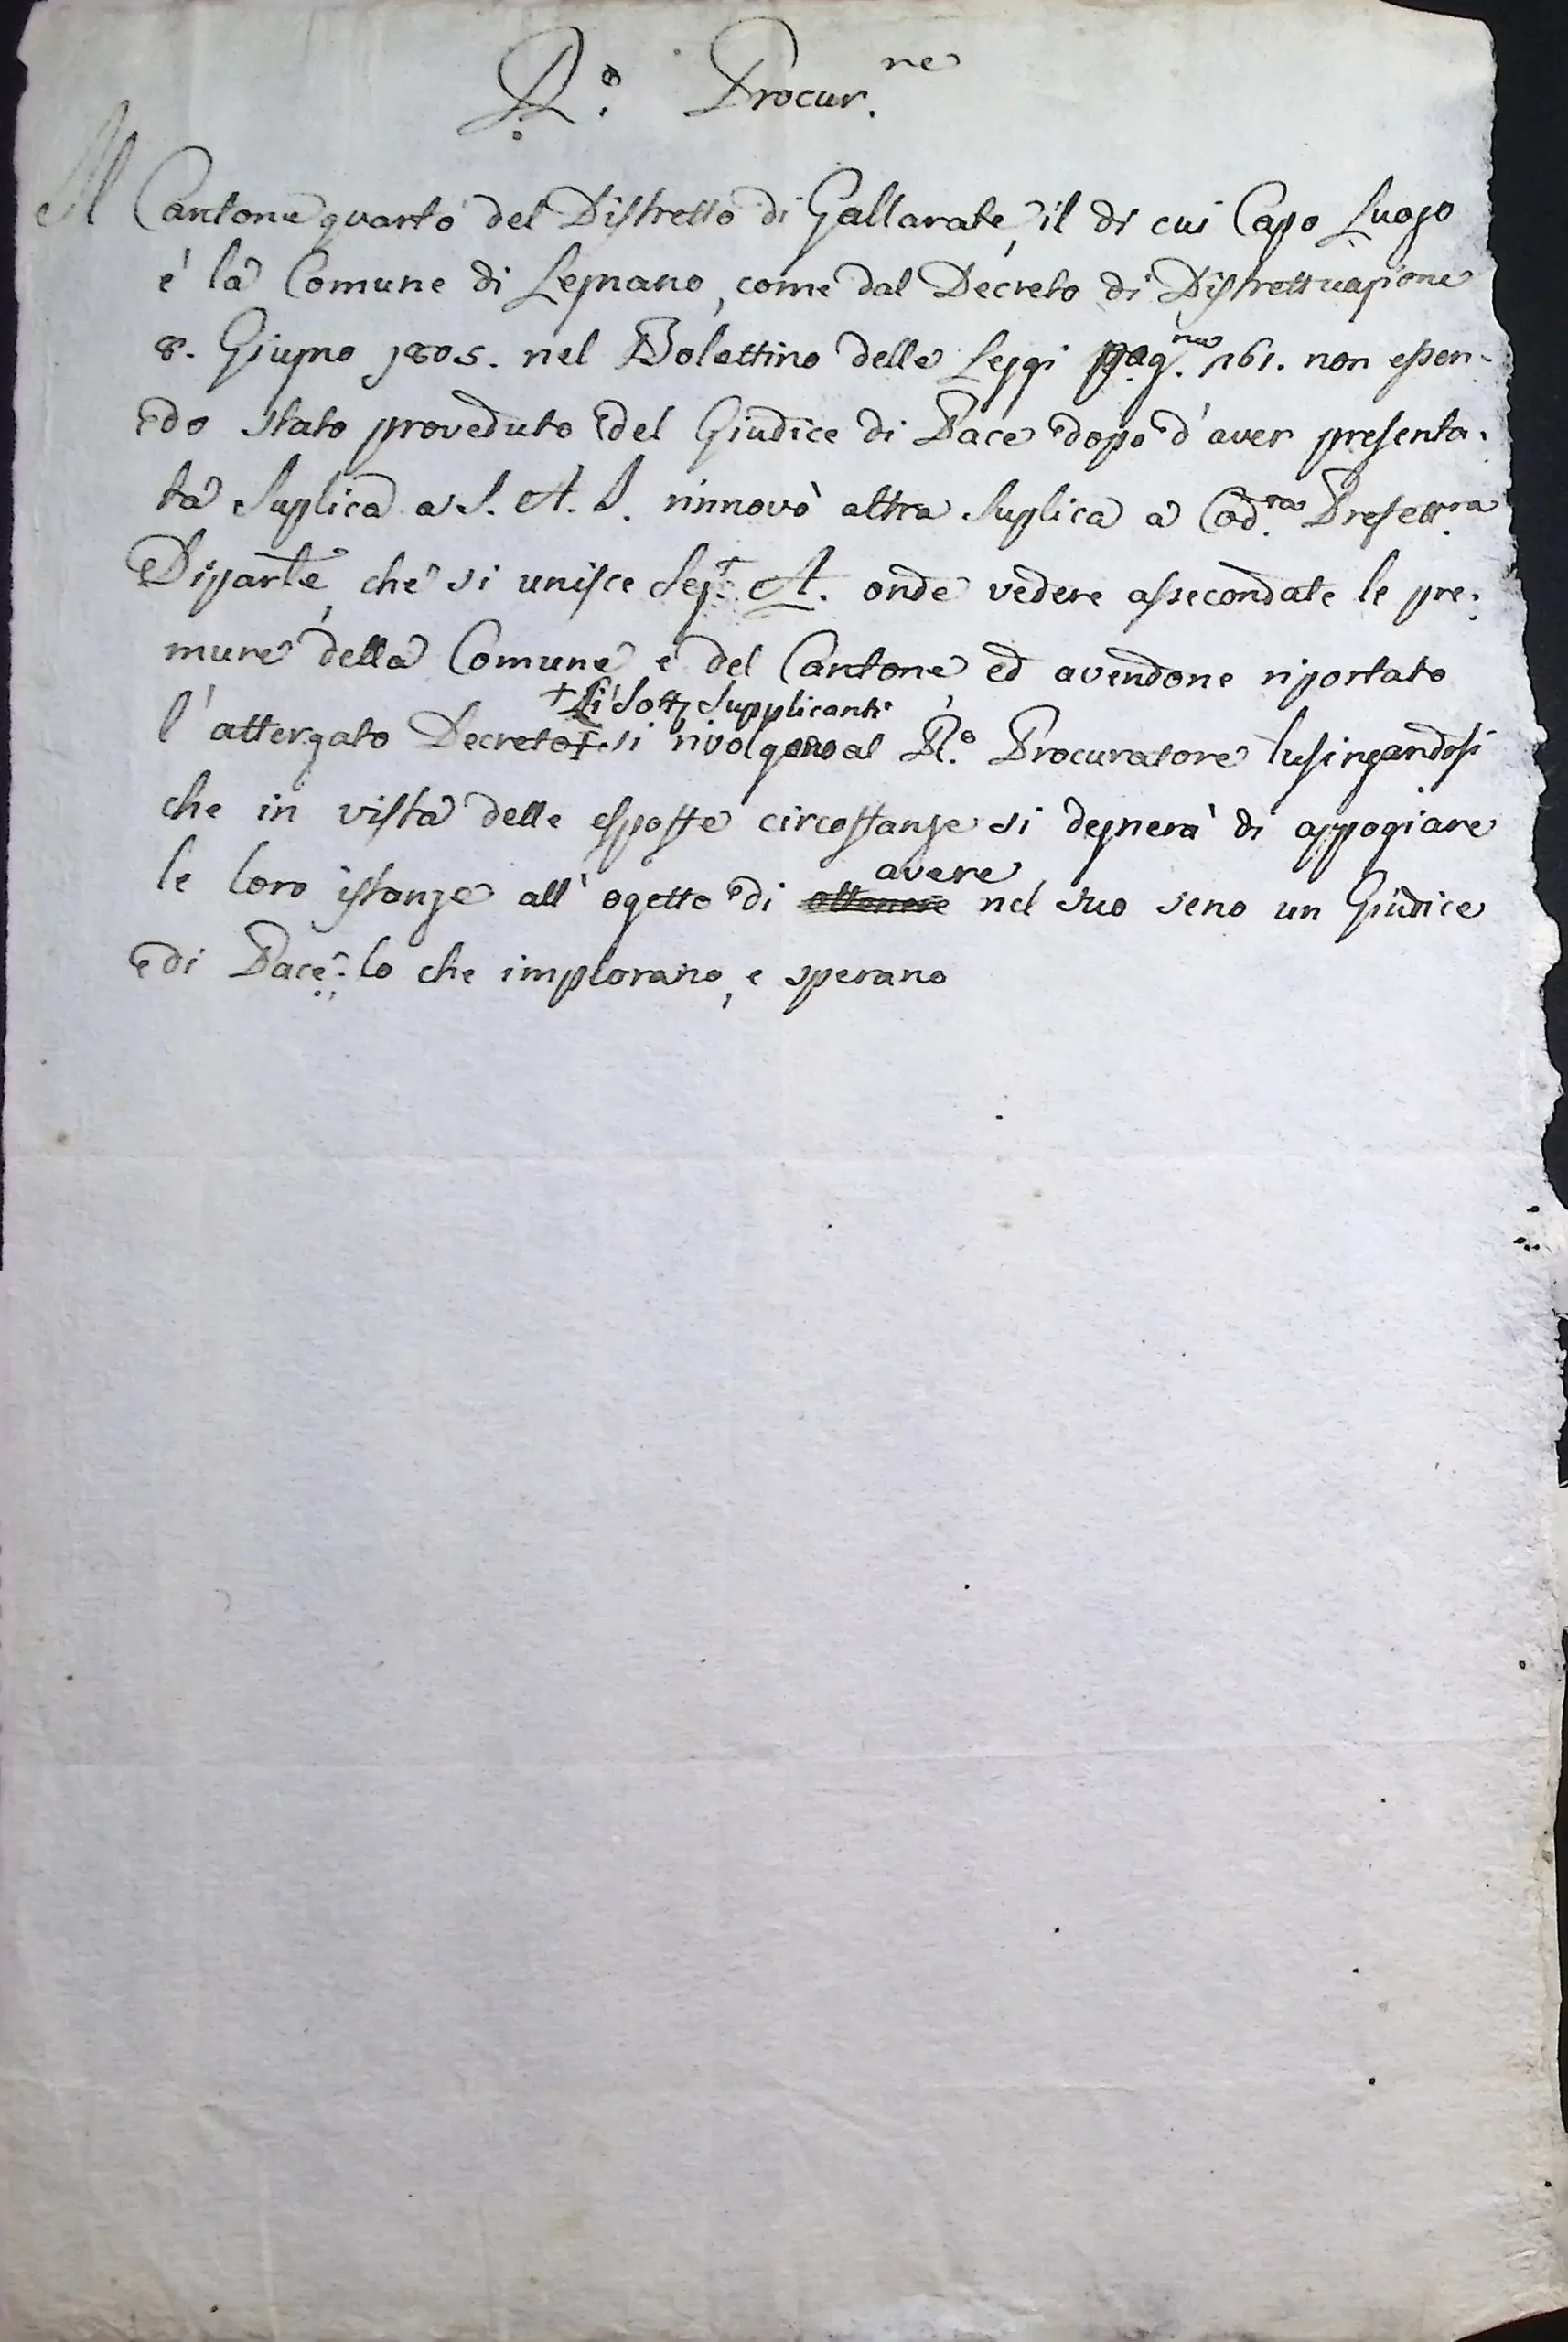 R.º Procur.ne
Il Cantone quarto del Distretto di Gallarate, il di cui Capo Luogo
è la Comune di Legnano, come dal Decreto di Distrettuazione
8. Giugno 1805. nel Bolettino delle Leggi pag.na 161. non essen-
do stato proveduto del Giudice di Pace dopo d'aver presenta-
ta Suplica a S. A. I. rinnovò altra Suplica a Cod.ta Prefett.ra
Dipart.le, che si unisce Seg.t A. onde vedere assecondate le pre:
mure della Comune, e del Cantone, ed avendone riportato
+ Li Sott.i Supplicanti
l'attergato Decreto + si rivolgono al R.º Procuratore lusingandosi
che in vista delle esposte circostanze si degnerà di appogiare
avere
le loro istanze all'ogetto di ottenere nel suo seno un Giudice
di Pace: lo che implorano, e sperano